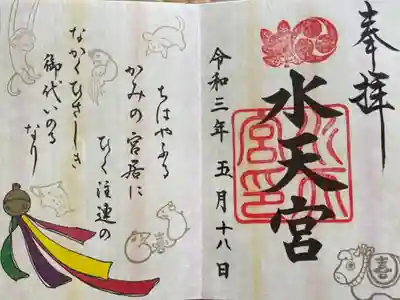 奉拝
水天宮
水天
宮印
令和三年 五月十八日
ちはやふる
かみの宮居に
ひく注連の
なかくひさしき
御代いのる
なり
喜
喜